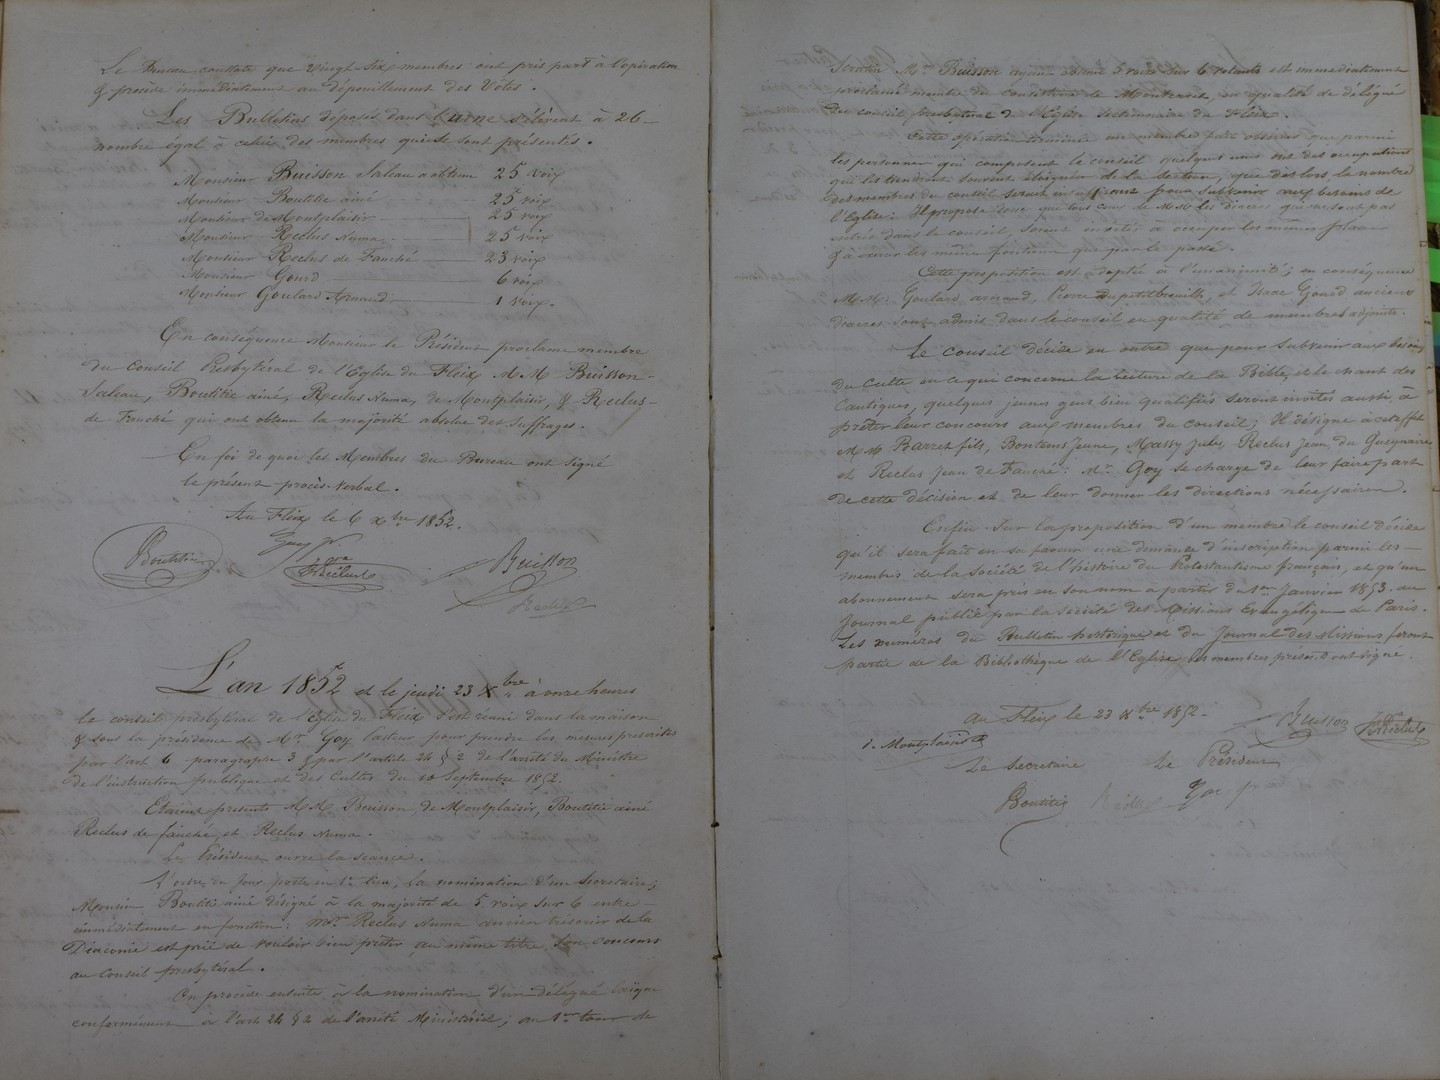 Le Bureau constate que vingt-six membres ont pris part à l'opération
& procède immédiatement au dépouillement des Votes.
Les Bulletins déposés dans l'urne s'élèvent à 26
nombre égal à celui des membres qui se sont présentés.
Monsieur Buisson Saleau a obtenu 25 voix
Monsieur Boutitié ainé 25 voix
Monsieur de Montplaisir 25 voix
Monsieur Reclus Numa 25 voix
Monsieur Reclus de Fauché 23 voix
Monsieur Gourd 6 voix
Monsieur Goulard Arnaud 1 voix.
En conséquence Monsieur le Président proclame membre
du Conseil Presbytéral de l'Eglise du Fleix M.M Buisson-
Saleau, Boutitié ainé, Reclus Numa, de Montplaisir, & Reclus-
de Fauché qui ont obtenu la majorité absolue des suffrages.
En foi de quoi les Membres du Bureau ont signé
le présent procès-verbal.
Au Fleix le 6 Xbre 1852.
Boutitié
Goy
Buisson
Reclus
L'an 1852 et le jeudi 23 Xbre à onze heures
le conseil presbytéral de l'Eglise du Fleix s'est réuni dans la maison
& sous la présidence de Mr. Goy pasteur pour prendre les mesures prescrites
par l'art 6 paragraphe 3 & par l'article 24 § 2 de l'arrêté du Ministre
de l'instruction publique et des Cultes du 10 Septembre 1852.
Etaient présents M.M. Buisson, de Montplaisir, Boutitié ainé
Reclus de fauché, et Reclus Numa.
Le Président ouvre la séance.
L'ordre du Jour porte en 1er lieu, la nomination d'un Secrétaire;
Monsieur Boutitié ainé désigné à la majorité de 5 voix sur 6 entre
immédiatement en fonction: Mr. Reclus Numa ancien trésorier de la
Diaconie est prié de vouloir bien prêter, au même titre, son concours
au Conseil presbytéral.
On procède ensuite à la nomination d'un délégué laïque
conformément à l'art 24 § 2 de l'arrêté Ministériel; au 1er tour de
Scrutin Mr. Buisson ayant obtenu 5 voix sur 6 votants est immédiatement
proclamé membre du consistoire de Montcaret, en qualité de délégué
du conseil presbytéral de l'Eglise sectionnaire du Fleix.
Cette opération terminée un membre fait observer que parmi
les personnes qui composent le conseil quelques unes ont des occupations
qui les tiendront souvent éloignées de la section, que dès lors le nombre
des membres du conseil serait insuffisant pour subvenir aux besoins de
l'Eglise: Il propose donc que tous ceux de M M les diacres qui ne sont pas
entrés dans le conseil, soient invités à occuper les mêmes places
& à exercer les même fonctions que par le passé.
Cette proposition est adoptée à l'unanimité; en conséquence
M.M. Goulard arnaud, Pierre Dupetitbreuilh, et Isaac Gourd anciens
diacres sont admis dans le conseil en qualité de membres adjoints.
Le conseil décide en outre que pour subvenir aux besoins
du culte en ce qui concerne la lecture de la Bible, et le chant des
Cantiques, quelques jeunes gens bien qualifiés seront invités aussi à
prêter leur concours aux membres du conseil; Il désigne à cet effet
M M Barret fils, Bontems Jeune, Massy Jules, Reclus Jean du Gueynaire
et Reclus Jean de Fauché: Mr. Goy se charge de leur faire part
de cette décision et de leur donner les directions nécessaires.
Enfin sur la proposition d'un membre le conseil décide
qu'il sera fait en sa faveur une demande d'inscription parmi les
membres de la société de l'histoire du Protestantisme français, et qu'un
abonnement sera pris en son nom à partir du 1er Janvier 1853 au
Journal publié par la Société des Missions Evangéliques de Paris.
Les numéros du Bulletin historique et du Journal des Missions feront
partie de la Bibliothèque de l'Eglise, les membres présents ont signé.
Au Fleix le 23 Xbre 1852.
Buisson
Montplaisir
Le Secrétaire Le Président
Boutitié Reclus Goy